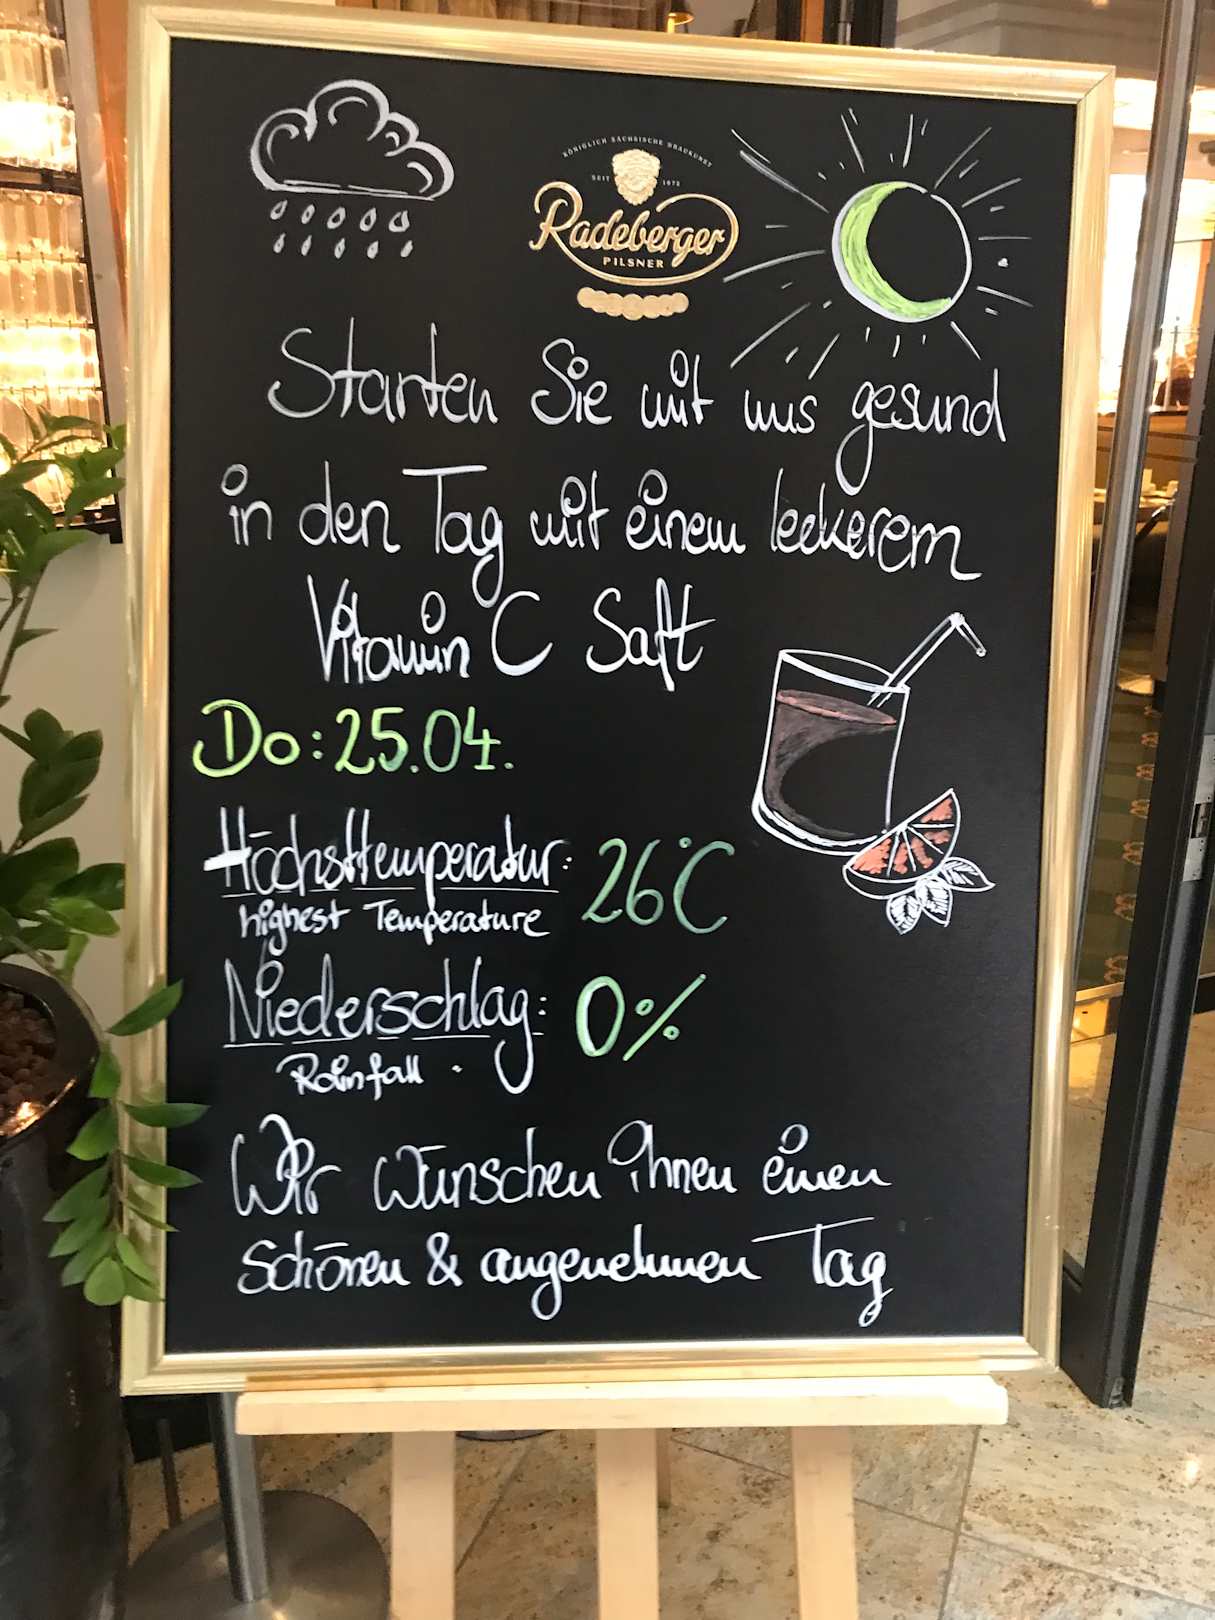 KÖNIGLICH SÄCHSISCHE BRAUKUNST
SEIT 1872
Radeberger
PILSNER
Starten Sie mit uns gesund
in den Tag mit einem leckerem
Vitamin C Saft
Do: 25.04.
Höchsttemperatur: 26°C
highest Temperature
Niederschlag: 0%
Rainfall
Wir wünschen ihnen einen
schönen & angenehmen Tag